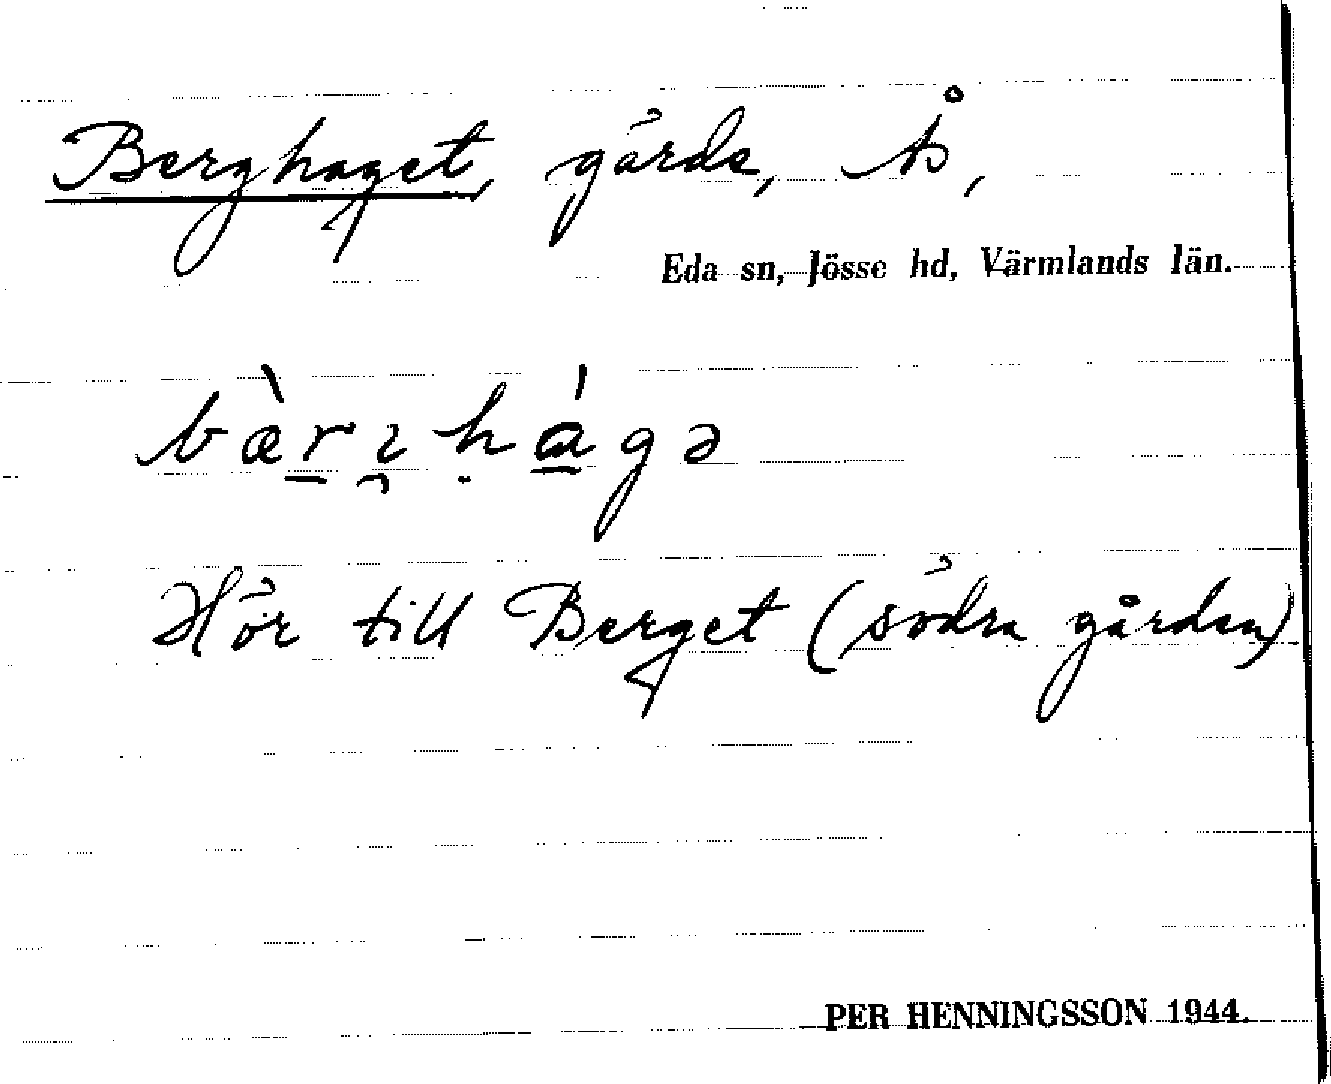 Berghaget, gärde, Ås,
Eda sn, Jösse hd, Värmlands län.
bæ̀r̲ı̯ḥá̲gə
Hör till Berget (södra gården)
PER HENNINGSSON 1944.